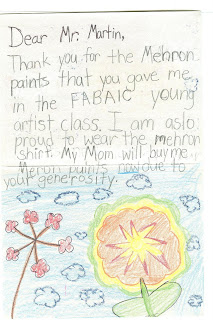 Dear Mr. Martin,
Thank you for the Mehron
paints that you gave me
in the FABAIC young
artist class. I am aslo
proud to wear the mehron
shirt. My Mom will buy me
Meron paints now due to
your generosity.